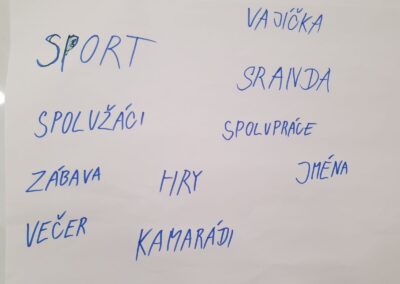 VAJÍČKA
SPORT
SRANDA
SPOLUŽÁCI
SPOLUPRÁCE
ZÁBAVA
HRY
JMÉNA
VEČER
KAMARÁDI